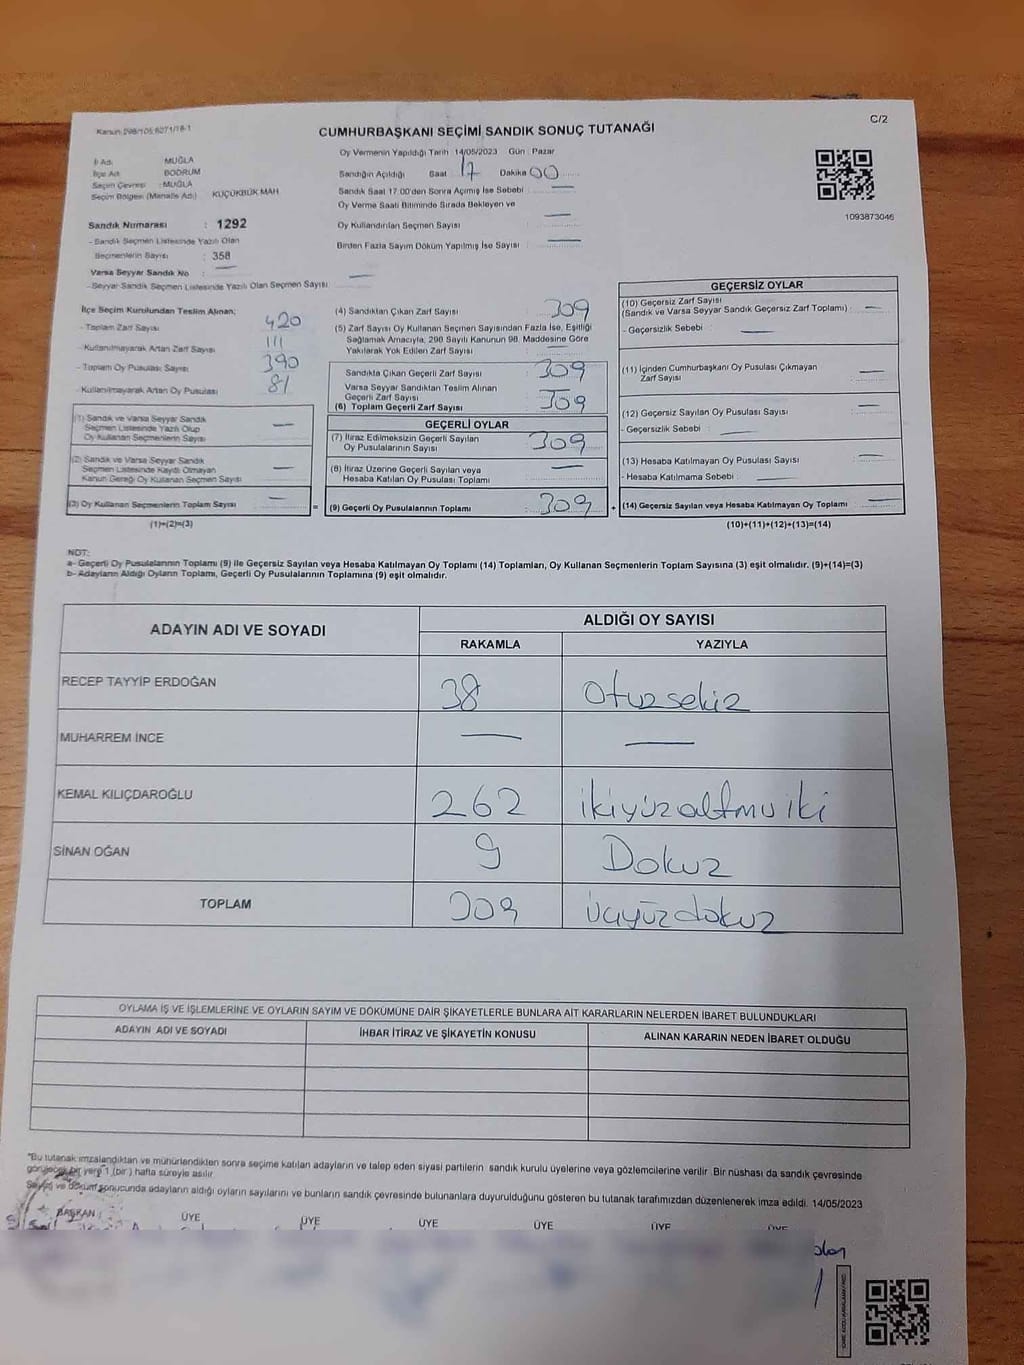 Kanun:298/105;6271/18-1
C/2
CUMHURBAŞKANI SEÇİMİ SANDIK SONUÇ TUTANAĞI
İl Adı MUĞLA
İlçe Adı BODRUM
Seçim Çevresi : MUĞLA
Seçim Bölgesi (Mahalle Adı) KÜÇÜKBÜK MAH
Sandık Numarası : 1292
- Sandık Seçmen Listesinde Yazılı Olan
Seçmenlerin Sayısı : 358
Varsa Seyyar Sandık No : —
- Seyyar Sandık Seçmen Listesinde Yazılı Olan Seçmen Sayısı —
Oy Vermenin Yapıldığı Tarih 14/05/2023 Gün : Pazar
Sandığın Açıldığı Saat 17 Dakika 00
Sandık Saat 17:00'den Sonra Açımış İse Sebebi : —
Oy Verme Saati Bitiminde Sırada Bekleyen ve
Oy Kullandırılan Seçmen Sayısı : —
Birden Fazla Sayım Döküm Yapılmış İse Sayısı : —
1093873046
İlçe Seçim Kurulundan Teslim Alınan;
- Toplam Zarf Sayısı 420
- Kullanılmayarak Artan Zarf Sayısı 111
- Toplam Oy Pusulası Sayısı 390
- Kullanılmayarak Artan Oy Pusulası 81
(1) Sandık ve Varsa Seyyar Sandık
Seçmen Listesinde Yazılı Olup
Oy Kullanan Seçmenlerin Sayısı —
(2) Sandık ve Varsa Seyyar Sandık
Seçmen Listesinde Kaydı Olmayan
Kanun Gereği Oy Kullanan Seçmen Sayısı —
(3) Oy Kullanan Seçmenlerin Toplam Sayısı —
(1)+(2)=(3)
(4) Sandıktan Çıkan Zarf Sayısı 309
(5) Zarf Sayısı Oy Kullanan Seçmen Sayısından Fazla İse, Eşitliği
Sağlamak Amacıyla, 298 Sayılı Kanunun 98. Maddesine Göre
Yakılarak Yok Edilen Zarf Sayısı : —
Sandıkta Çıkan Geçerli Zarf Sayısı : 309
Varsa Seyyar Sandıktan Teslim Alınan
Geçerli Zarf Sayısı
(6) Toplam Geçerli Zarf Sayısı : 309
GEÇERLİ OYLAR
(7) İtiraz Edilmeksizin Geçerli Sayılan
Oy Pusulalarının Sayısı : 309
(8) İtiraz Üzerine Geçerli Sayılan veya
Hesaba Katılan Oy Pusulası Toplamı —
= (9) Geçerli Oy Pusulalarının Toplamı : 309 +
GEÇERSİZ OYLAR
(10) Geçersiz Zarf Sayısı
(Sandık ve Varsa Seyyar Sandık Geçersiz Zarf Toplamı) : —
- Geçersizlik Sebebi : —
(11) İçinden Cumhurbaşkanı Oy Pusulası Çıkmayan
Zarf Sayısı : —
(12) Geçersiz Sayılan Oy Pusulası Sayısı : —
- Geçersizlik Sebebi : —
(13) Hesaba Katılmayan Oy Pusulası Sayısı : —
- Hesaba Katılmama Sebebi : —
(14) Geçersiz Sayılan veya Hesaba Katılmayan Oy Toplamı : —
(10)+(11)+(12)+(13)=(14)
NOT:
a- Geçerli Oy Pusulalarının Toplamı (9) ile Geçersiz Sayılan veya Hesaba Katılmayan Oy Toplamı (14) Toplamları, Oy Kullanan Seçmenlerin Toplam Sayısına (3) eşit olmalıdır. (9)+(14)=(3)
b- Adayların Aldığı Oyların Toplamı, Geçerli Oy Pusulalarının Toplamına (9) eşit olmalıdır.
ADAYIN ADI VE SOYADI
ALDIĞI OY SAYISI
RAKAMLA YAZIYLA
RECEP TAYYİP ERDOĞAN 38 otuzsekiz
MUHARREM İNCE — —
KEMAL KILIÇDAROĞLU 262 ikiyüzaltmıiki
SİNAN OĞAN 9 Dokuz
TOPLAM 309 üçyüzdokuz
OYLAMA İŞ VE İŞLEMLERİNE VE OYLARIN SAYIM VE DÖKÜMÜNE DAİR ŞİKAYETLERLE BUNLARA AİT KARARLARIN NELERDEN İBARET BULUNDUKLARI
ADAYIN ADI VE SOYADI İHBAR İTİRAZ VE ŞİKAYETİN KONUSU ALINAN KARARIN NEDEN İBARET OLDUĞU
*Bu tutanak imzalandıktan ve mühürlendikten sonra seçime katılan adayların ve talep eden siyasi partilerin sandık kurulu üyelerine veya gözlemcilerine verilir. Bir nüshası da sandık çevresinde
görülecek bir yere 1 (bir) hafta süreyle asılır.
Sayım ve döküm sonucunda adayların aldığı oyların sayılarını ve bunların sandık çevresinde bulunanlara duyurulduğunu gösteren bu tutanak tarafımızdan düzenlenerek imza edildi. 14/05/2023
BAŞKAN ÜYE ÜYE ÜYE ÜYE ÜYE ÜYE